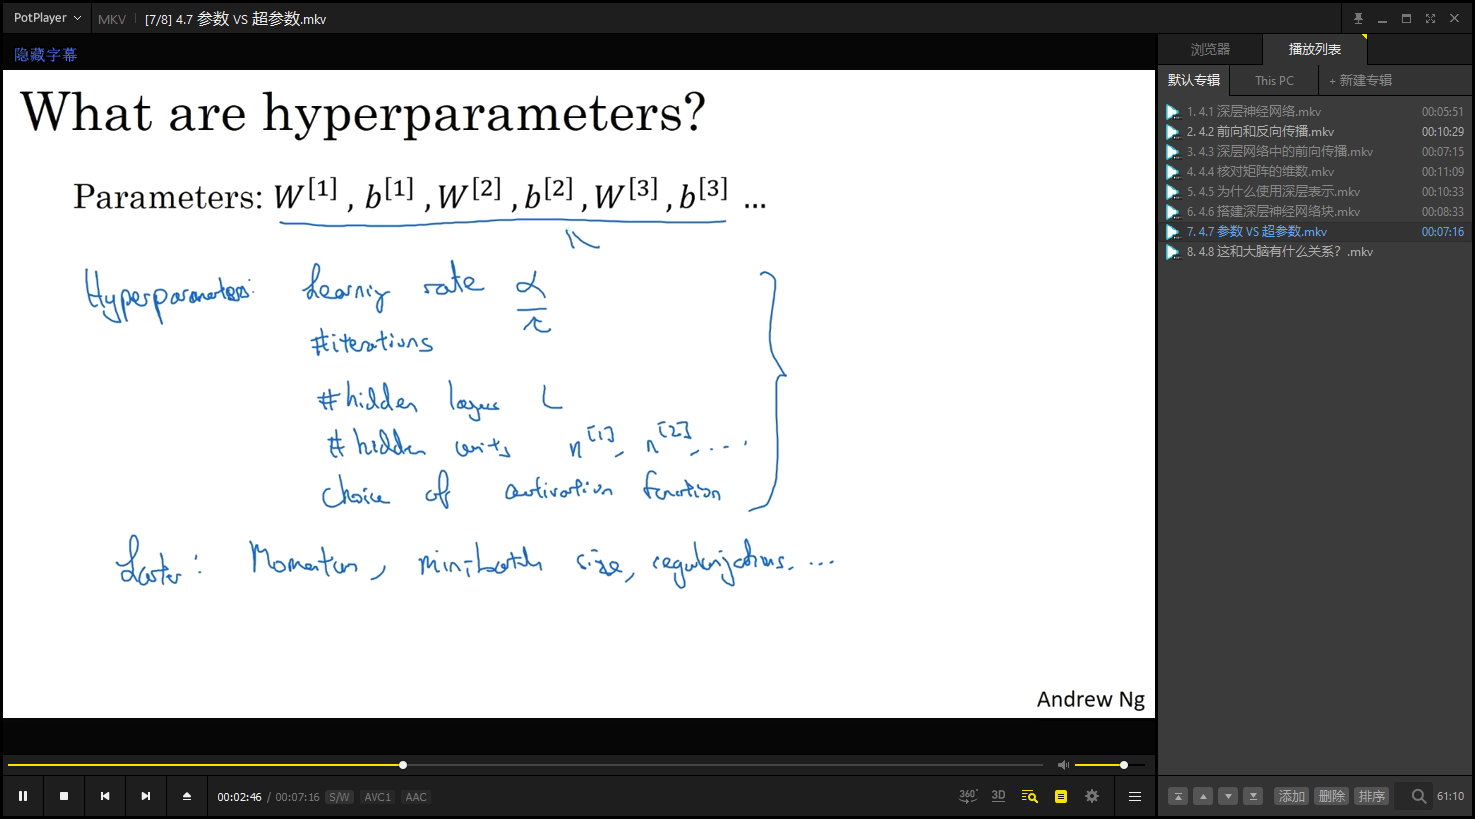 PotPlayer MKV [7/8] 4.7 参数 VS 超参数.mkv
隐藏字幕
What are hyperparameters?
Parameters: W[1] , b[1] , W[2] , b[2] , W[3] , b[3] ...
Hyperparameters: Learning rate α
#iterations
#hidden layers L
#hidden units n[1], n[2], ...
choice of activation function
Later: Momentum, mini-batch size, regularizations, ...
Andrew Ng
00:02:46 / 00:07:16 S/W AVC1 AAC
360° 3D
浏览器 播放列表
默认专辑 This PC + 新建专辑
1. 4.1 深层神经网络.mkv 00:05:51
2. 4.2 前向和反向传播.mkv 00:10:29
3. 4.3 深层网络中的前向传播.mkv 00:07:15
4. 4.4 核对矩阵的维数.mkv 00:11:09
5. 4.5 为什么使用深层表示.mkv 00:10:33
6. 4.6 搭建深层神经网络块.mkv 00:08:33
7. 4.7 参数 VS 超参数.mkv 00:07:16
8. 4.8 这和大脑有什么关系？.mkv
添加 删除 排序 61:10